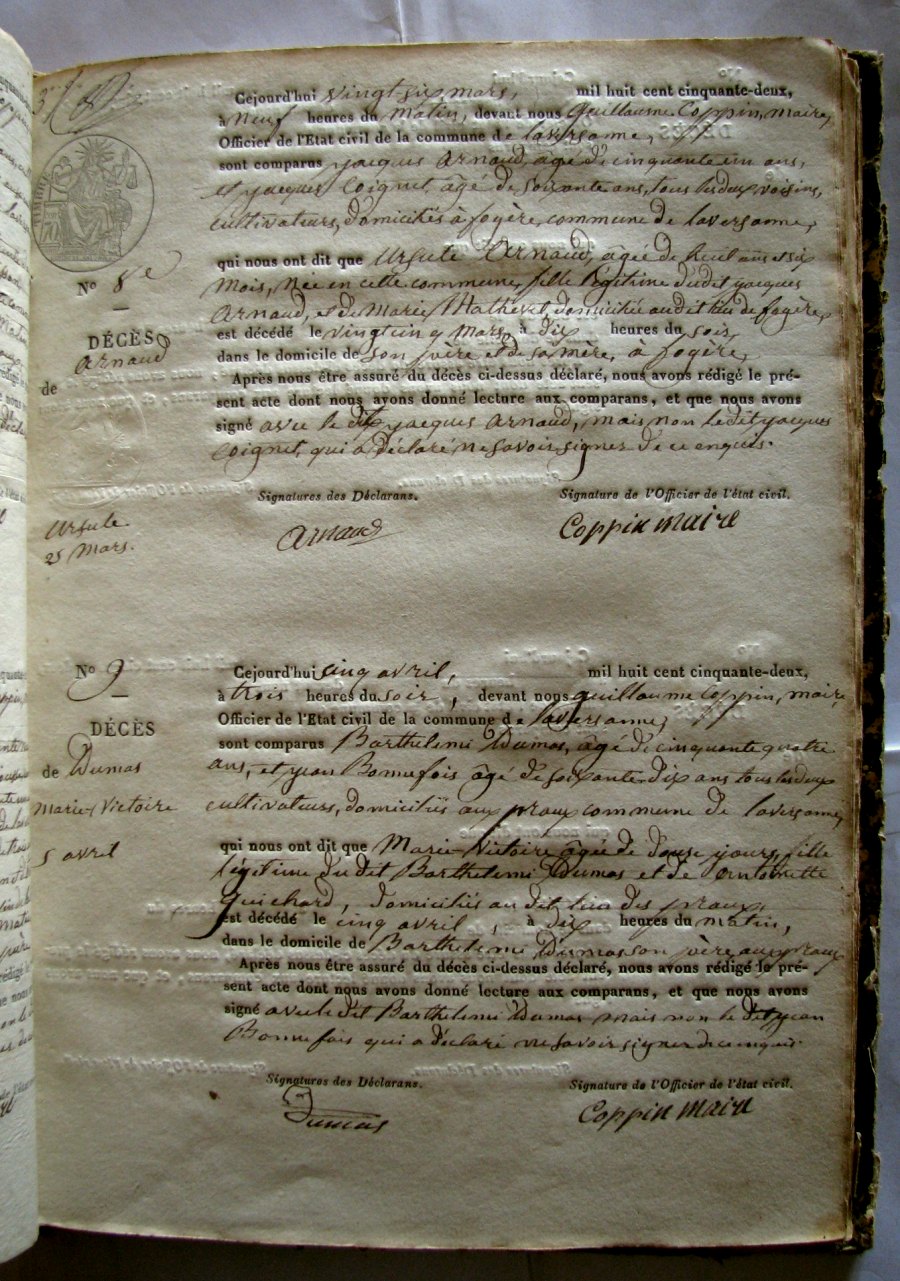 Cejourd'hui vingt six mars, mil huit cent cinquante-deux,
à neuf heures du matin, devant nous Guillaume Coppin, maire,
Officier de l'Etat civil de la commune de laversanne,
sont comparus jacques Arnaud, âgé de cinquante un ans,
et jacques Coignet, âgé de soixante ans, tous les deux voisins,
cultivateurs, domiciliés à fogère, commune de laversanne,
No 8e
qui nous ont dit que Ursule Arnaud, âgée de huit ans et six
mois, née en cette commune, fille légitime du dit jacques
Arnaud, et de Marie Mathevet, domiciliée au dit lieu de fogère,
DÉCÈS
est décédé le vingt cinq Mars, à dix heures du soir,
Arnaud
dans le domicile de son père et de sa mère, à fogère,
de
Après nous être assuré du décès ci-dessus déclaré, nous avons rédigé le pré-
sent acte dont nous avons donné lecture aux comparans, et que nous avons
signé avec le dit jacques Arnaud, mais non le dit jacques
Coignet, qui a déclaré ne savoir signer de ce enquis.
Signatures des Déclarans. Signature de l'Officier de l'état civil.
Ursule
25 Mars.
Arnaud Coppin maire
No 9
Cejourd'hui cinq avril, mil huit cent cinquante-deux,
à trois heures du soir, devant nous guillaume Coppin, maire,
Officier de l'Etat civil de la commune de laversanne,
DÉCÈS
sont comparus Barthelemi Dumas, âgé de cinquante quatre
de Dumas
ans, et jean Bonnefois âgé de soixante dix ans tous les deux
Marie Victoire
cultivateurs, domiciliés aux praux commune de laversanne,
5 avril
qui nous ont dit que Marie-Victoire âgée de douse jours, fille
légitime du dit Barthelemi Dumas et de Antoinette
Guichard, domiciliés au dit lieu des praux,
est décédé le cinq avril, à dix heures du matin,
dans le domicile de Barthelemi Dumas son père, aux praux
Après nous être assuré du décès ci-dessus déclaré, nous avons rédigé le pré-
sent acte dont nous avons donné lecture aux comparans, et que nous avons
signé avec le dit Barthelemi Dumas mais non le dit jean
Bonnefois qui a déclaré ne savoir signer de ce enquis.
Signatures des Déclarans. Signature de l'Officier de l'état civil.
Dumas Coppin maire